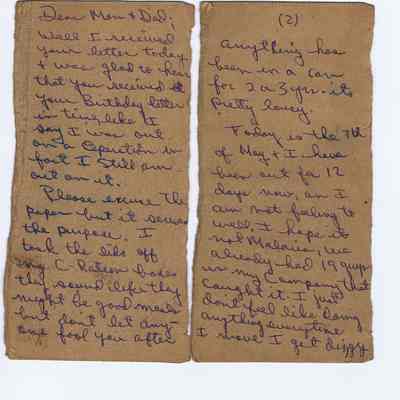 Dear Mom & Dad;
Well I received
your letter today
& was glad to hear
that you received
your Birthday letter
in time like I
say I was out
on a Operation in
fact I still am
out on it.
Please excuse the
paper but it serves
the purpose. I
took the lids off
my C-Ration boxes
they sound like they
might be good meals
but don't let any-
one fool you after
(2)
anything has
been in a can
for 2 or 3 yrs. its
pretty lousy.
Today is the 7th
of May & I have
been out for 12
days now, an I
am not feeling to
well, I hope its
not Malaria, we
already had 19 guys
in my Company that
caught it. I just
don't feel like doing
anything everytime
I move I get dizzy